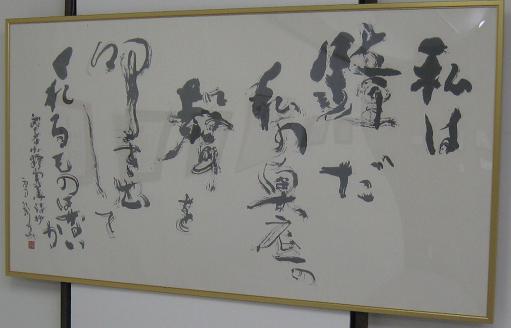 私は
鐘だ
私の奥底の
聲を
叩き出して
くれるものはないか